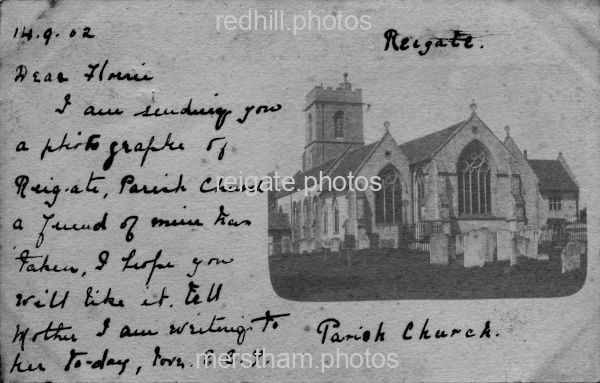 redhill.photos
14.9.02
Reigate.
Dear Florrie
I am sending you
a photographe of
Reigate, Parish Church
a friend of mine has
taken, I hope you
will like it. tell
Mother I am writing to
her to-day, love.
reigate.photos
Parish Church.
merstham.photos